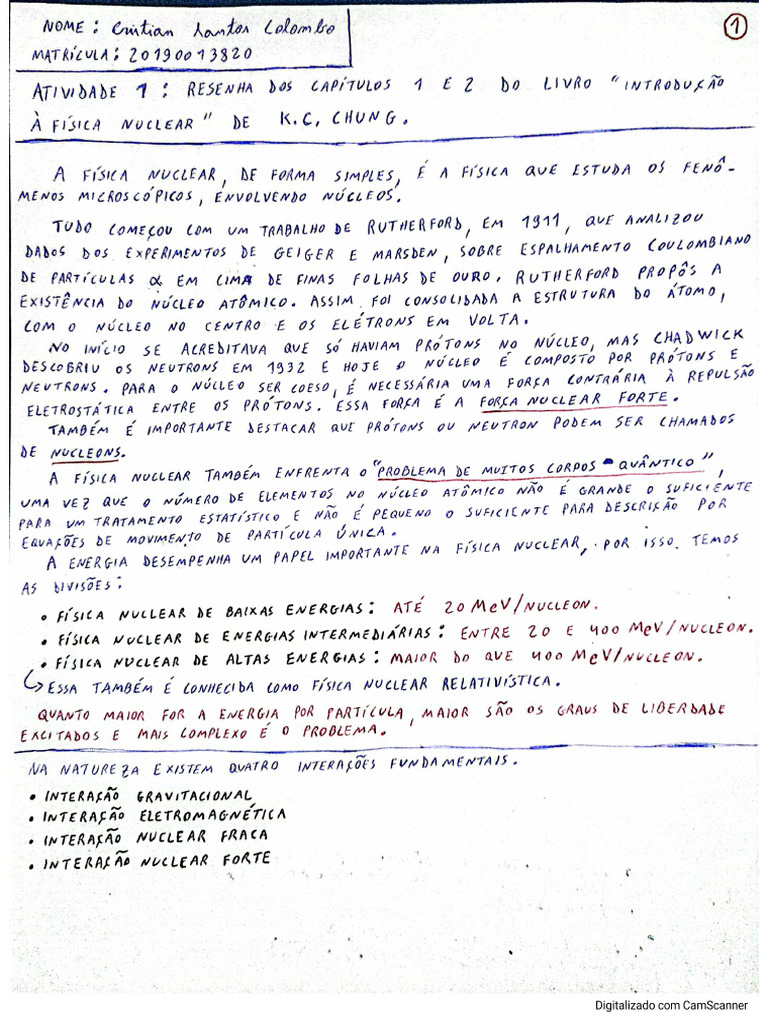 1
NOME: Cristian Santos Colombo
MATRÍCULA: 20190013820
ATIVIDADE 1: RESENHA DOS CAPÍTULOS 1 E 2 DO LIVRO "INTRODUÇÃO
À FÍSICA NUCLEAR" DE K.C. CHUNG.
A FÍSICA NUCLEAR, DE FORMA SIMPLES, É A FÍSICA QUE ESTUDA OS FENÔ-
MENOS MICROSCÓPICOS, ENVOLVENDO NÚCLEOS.
TUDO COMEÇOU COM UM TRABALHO DE RUTHERFORD, EM 1911, QUE ANALIZOU
DADOS DOS EXPERIMENTOS DE GEIGER E MARSDEN, SOBRE ESPALHAMENTO COULOMBIANO
DE PARTÍCULAS α EM CIMA DE FINAS FOLHAS DE OURO. RUTHERFORD PROPÔS A
EXISTÊNCIA DO NÚCLEO ATÔMICO. ASSIM FOI CONSOLIDADA A ESTRUTURA DO ÁTOMO,
COM O NÚCLEO NO CENTRO E OS ELÉTRONS EM VOLTA.
NO INÍCIO SE ACREDITAVA QUE SÓ HAVIAM PRÓTONS NO NÚCLEO, MAS CHADWICK
DESCOBRIU OS NEUTRONS EM 1932 E HOJE O NÚCLEO É COMPOSTO POR PRÓTONS E
NEUTRONS. PARA O NÚCLEO SER COESO, É NECESSÁRIA UMA FORÇA CONTRÁRIA À REPULSÃO
ELETROSTÁTICA ENTRE OS PRÓTONS. ESSA FORÇA É A FORÇA NUCLEAR FORTE.
TAMBÉM É IMPORTANTE DESTACAR QUE PRÓTONS OU NEUTRON PODEM SER CHAMADOS
DE NUCLEONS.
A FÍSICA NUCLEAR TAMBÉM ENFRENTA O "PROBLEMA DE MUITOS CORPOS - QUÂNTICO",
UMA VEZ QUE O NÚMERO DE ELEMENTOS NO NÚCLEO ATÔMICO NÃO É GRANDE O SUFICIENTE
PARA UM TRATAMENTO ESTATÍSTICO E NÃO É PEQUENO O SUFICIENTE PARA DESCRIÇÃO POR
EQUAÇÕES DE MOVIMENTO DE PARTÍCULA ÚNICA.
A ENERGIA DESEMPENHA UM PAPEL IMPORTANTE NA FÍSICA NUCLEAR, POR ISSO TEMOS
AS DIVISÕES:
• FÍSICA NUCLEAR DE BAIXAS ENERGIAS: ATÉ 20 MeV/NUCLEON.
• FÍSICA NUCLEAR DE ENERGIAS INTERMEDIÁRIAS: ENTRE 20 E 400 MeV/NUCLEON.
• FÍSICA NUCLEAR DE ALTAS ENERGIAS: MAIOR DO QUE 400 MeV/NUCLEON.
↳ ESSA TAMBÉM É CONHECIDA COMO FÍSICA NUCLEAR RELATIVÍSTICA.
QUANTO MAIOR FOR A ENERGIA POR PARTÍCULA, MAIOR SÃO OS GRAUS DE LIBERDADE
EXCITADOS E MAIS COMPLEXO É O PROBLEMA.
NA NATUREZA EXISTEM QUATRO INTERAÇÕES FUNDAMENTAIS.
• INTERAÇÃO GRAVITACIONAL
• INTERAÇÃO ELETROMAGNÉTICA
• INTERAÇÃO NUCLEAR FRACA
• INTERAÇÃO NUCLEAR FORTE
Digitalizado com CamScanner